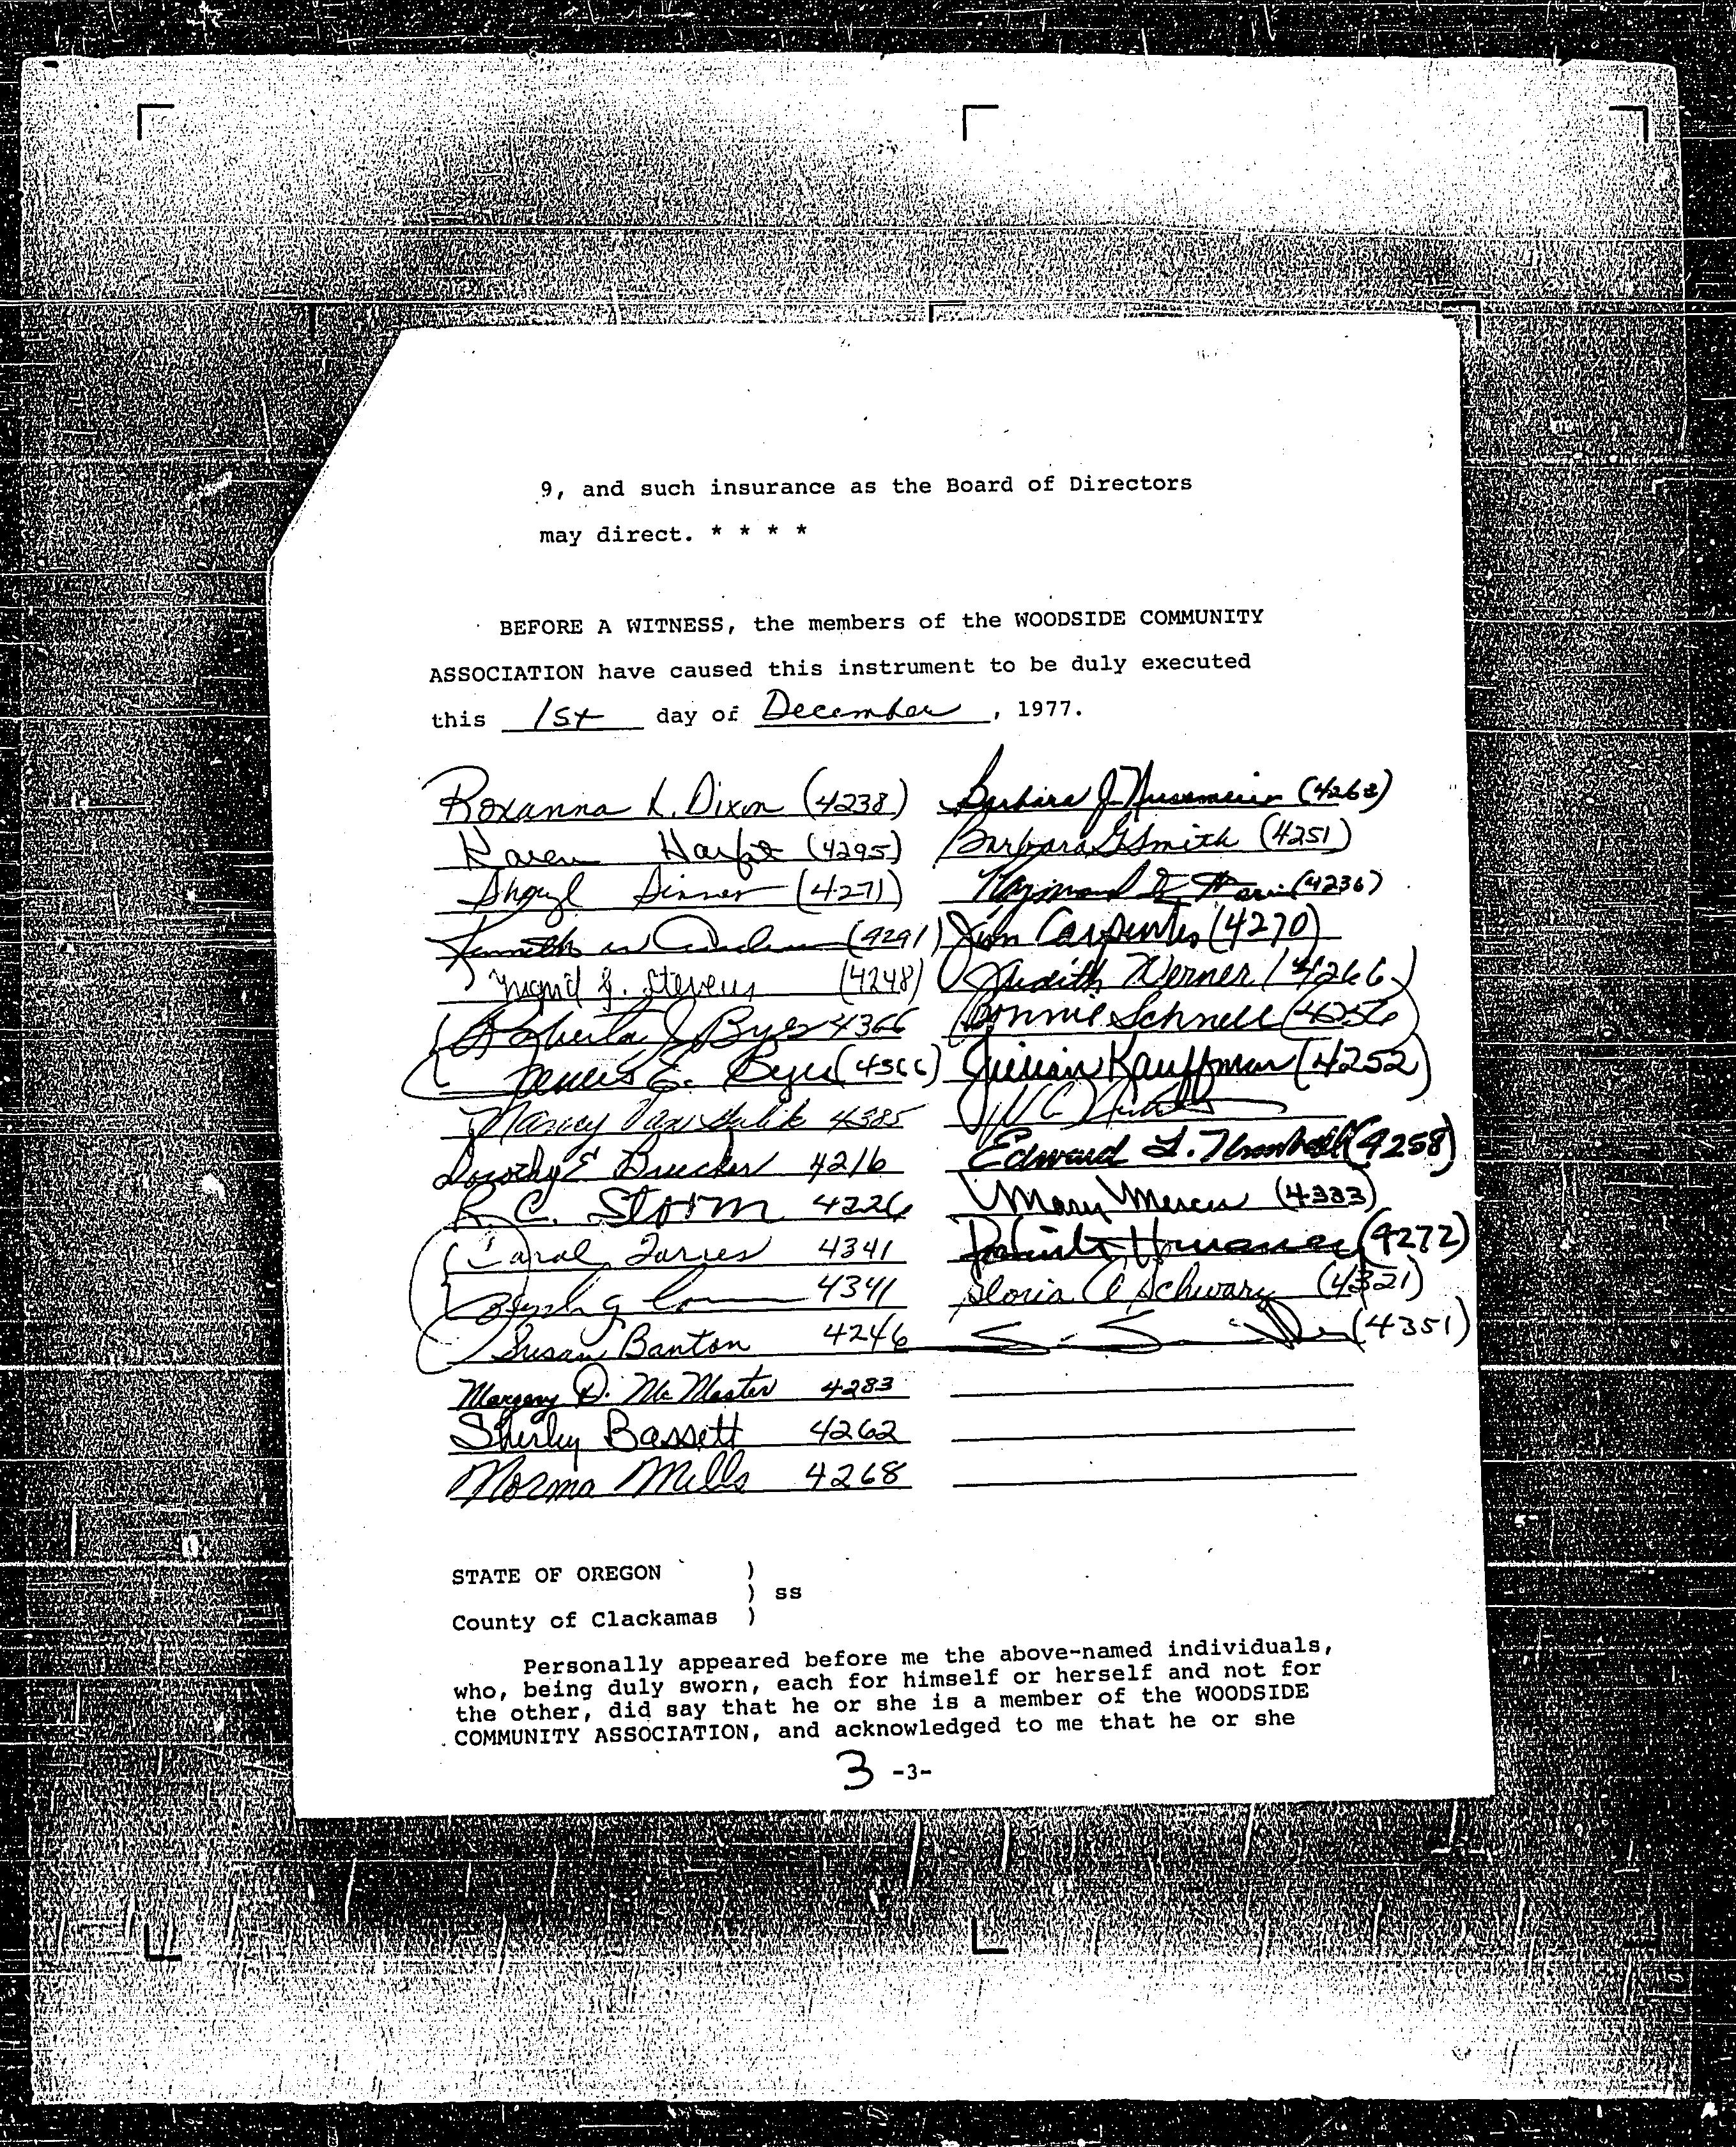 9, and such insurance as the Board of Directors
may direct. * * * *
BEFORE A WITNESS, the members of the WOODSIDE COMMUNITY
ASSOCIATION have caused this instrument to be duly executed
this 1st day of December, 1977.
Roxanna L. Dixon (4238)
Karen (4295)
Sheryl (4271)
Kenneth W (4291)
Ingrid J. Stevens (4248)
Roberta J Byes 4366
E. Byes (4366)
Nancy 4385
Dorothy E 4216
R. C. Storm 4226
Carol 4341
4341
Susan Banton 4246
Margery D. McMaster 4283
Shirley Bassett 4262
Norma Mills 4268
Barbara J.
Barbara G Smith (4251)
Raymond (4236)
Jim Carpenter (4270)
Judith Werner (4266)
Bonnie Schnell (4256)
Kauffman (4252)
Edward L. (4258)
Mary (4333)
(4272)
Gloria A Schwary (4321)
(4351)
STATE OF OREGON )
) ss
County of Clackamas )
Personally appeared before me the above-named individuals,
who, being duly sworn, each for himself or herself and not for
the other, did say that he or she is a member of the WOODSIDE
COMMUNITY ASSOCIATION, and acknowledged to me that he or she
3 -3-